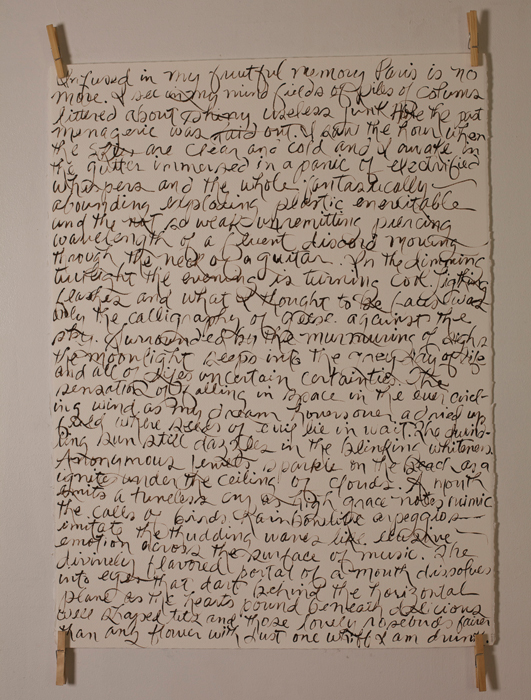 Infused in my fruitful memory Paris is no
more. I see in my mind fields of piles of colums
littered about skinny useless junk the past
menagerie was laid out. I saw the hour when
the skies are clear and cold and I awake in
the gutter immersed in a panic of electrified
whispers and the whole fantastically
abounding exploding plastic inevitable
and the not so weak unremitting piercing
wavelength of a fluent discord moving
through the neck of a guitar. In the dimming
twilight the evening is turning cold. lighting
flashes and what I thought to be fate was
only the calligraphy of geese against the
sky. Surrounded by the murmuring of sighs
the moonlight seeps into the grey day of life
and all of life's uncertain certainties. The
sensation of falling in space in the ever
ing wind as my dream hovers over a dried up
field where seeds of evil lie in wait. The
ling sun still dazzles in the blinking whiteness
Anonymous jewels sparkle on the beach as a
ignite under the ceiling of clouds. A mouth
emits a tuneless cry as high grace notes mimic
the calls of birds. Rainbowlike arpeggios
imitate the thudding waves like
emotion across the surface of music. The
divinely flavored portal of a mouth dissolves
into eyes that dart behind the horizontal
plane as the hearts pound beneath delicious
well shaped tits and those lovely rosebuds fairer
than any flower with just one whiff I am drunk.